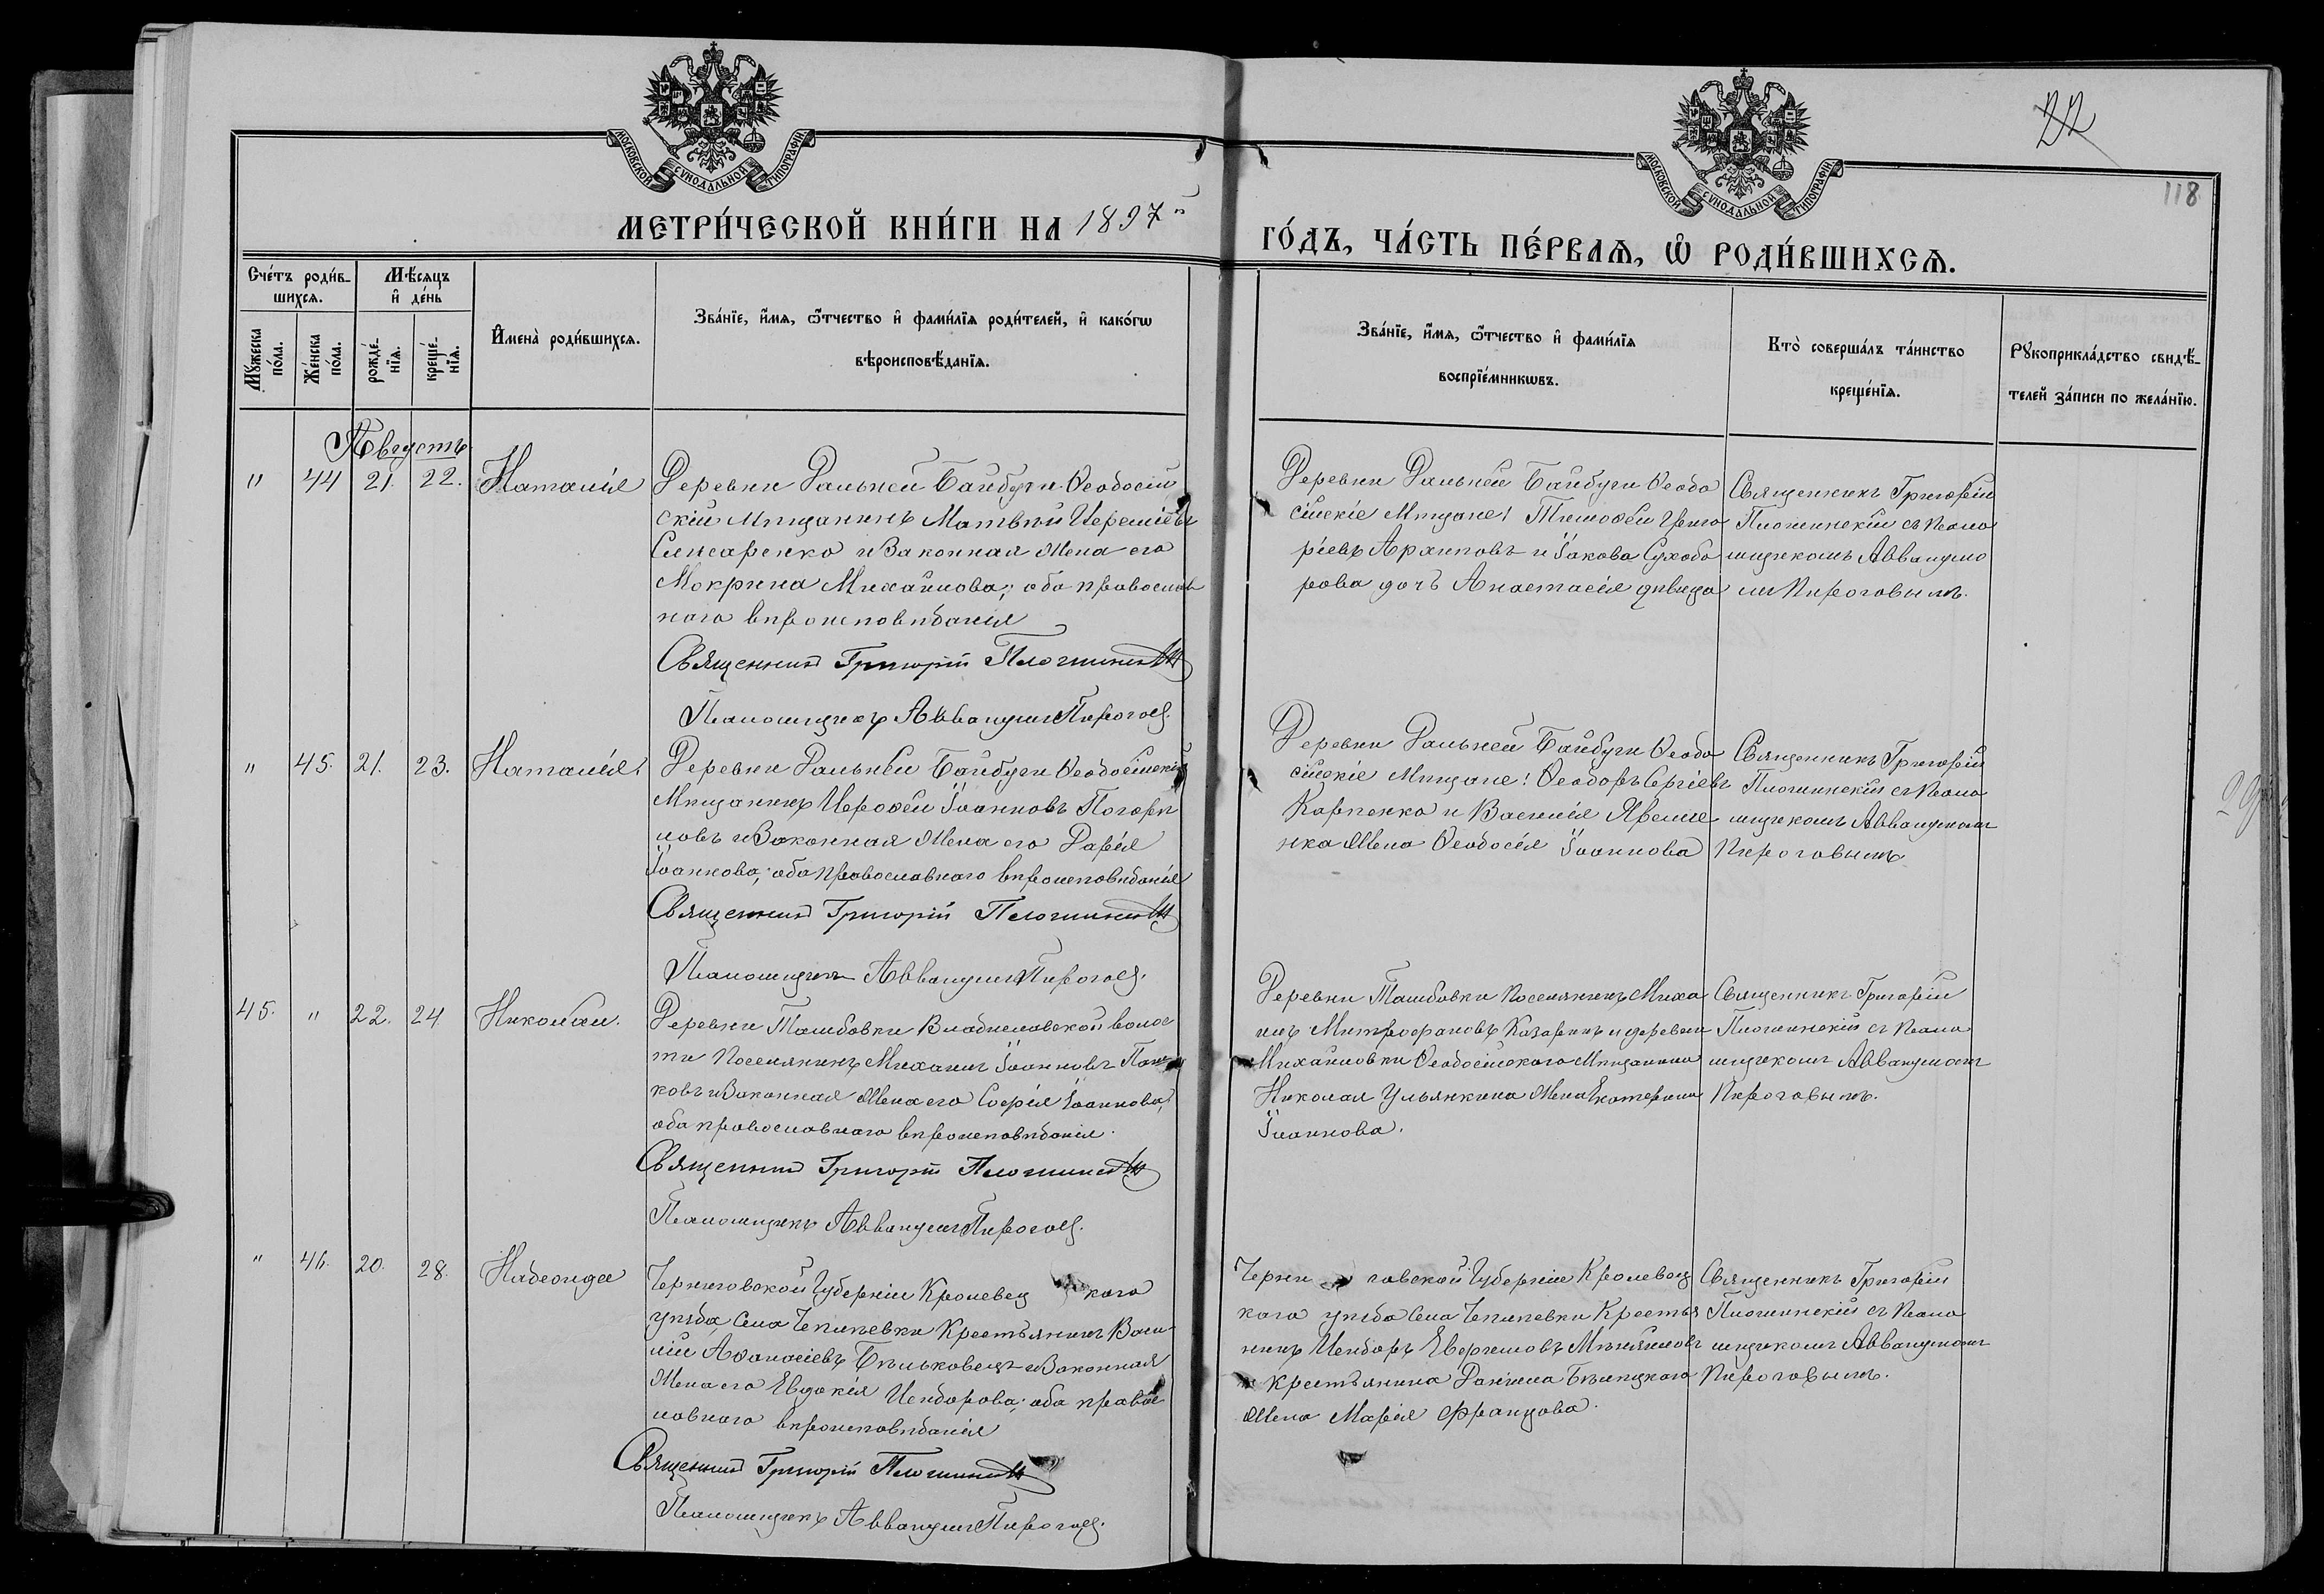 МОСКОВСКОЙ СѴНОДАЛЬНОЙ ТИПОГРАФІИ
МОСКОВСКОЙ СѴНОДАЛЬНОЙ ТИПОГРАФІИ
22
118
МЕТРИ́ЧЕСКОЙ КНИ́ГИ НА 1897й
ГО́ДЪ, ЧА́СТЬ ПЕ́РВАѦ, Ѡ҆ РОДИ́ВШИХСѦ.
Сче́тъ роди́в-
шихсѧ.
Мѣ́сѧцъ
и҆ де́нь
Мꙋ́жеска
по́ла.
Же́нска
по́ла.
рожде́-
нїѧ.
креще́-
нїѧ.
И҆мена̀ роди́вшихсѧ.
Зва́нїе, и҆́мѧ, ѻ҆́тчество и҆ фами́лїѧ роди́телей, и҆ како́гѡ
вѣроисповѣ́данїѧ.
Зва́нїе, и҆́мѧ, ѻ҆́тчество и҆ фами́лїѧ
воспрїе́мникѡвъ.
Кто̀ соверша́лъ та́инство
креще́нїѧ.
Рꙋкоприкла́дство свидѣ́-
телей за́писи по жела́нїю.
Августъ.
" 44 21. 22. Наталія
Деревни Дальней Байбуги Ѳеодосій
скій Мѣщанинъ Матвѣй Іереміевъ
Слюсаренко и Законная Жена его
Мокрина Михайлова; оба православ
наго вѣроисповѣданія
Священникъ Григорій Плотинскій
Псаломщикъ Аввакумъ Пироговъ.
Деревни Дальней Байбуги Ѳеодо
сійскіе Мѣщане: Тимоѳей Григо
ріевъ Архиповъ и Іакова Сухобо
рова дочь Анастасія дѣвица
Священникъ Григорій
Плотинскій съ Псало
мщикомъ Аввакумо
мъ Пироговымъ.
" 45. 21. 23. Наталія.
Деревни Дальней Байбуги Ѳеодосійскій
Мѣщанинъ Іероѳей Іоанновъ Погорѣ
ловъ и Законная Жена его Дарія
Іоаннова; оба Православнаго вѣроисповѣданія
Священникъ Григорій Плотинскій
Псаломщикъ Аввакумъ Пироговъ.
Деревни Дальней Байбуги Ѳеодо
сійскіе Мѣщане: Ѳеодоръ Сергіевъ
Карпенко и Василія Яреме
нка Жена Ѳеодосія Іоаннова
Священникъ Григорій
Плотинскій съ Псало
мщикомъ Аввакумомъ
Пироговымъ
45. " 22. 24 Николай.
Деревни Тамбовки Владиславской волос
ти Поселянинъ Михаилъ Іоанновъ
ковъ и Законная Жена его Софія Іоаннова,
оба православнаго вѣроисповѣданія.
Священникъ Григорій Плотинскій
Псаломщикъ Аввакумъ Пироговъ.
Деревни Тамбовки Поселянинъ Миха
илъ Митрофановъ Казаринъ и деревни
Михайловки Ѳеодосійскаго Мѣщанина
Николая Ульянкина Жена Екатерина
Іоаннова.
Священникъ Григорій
Плотинскій съ Псало
мщикомъ Аввакумомъ
Пироговымъ.
" 46. 20. 28. Надежда
Черниговской Губерніи Кролевец кого
уѣзда, Села Чепиевки Крестьянинъ Васи
лій Аѳанасіевъ Бѣльковецъ и Законная
Жена его Евдокія Исидорова; оба правос
лавнаго вѣроисповѣданія
Священникъ Григорій Плотинскій
Псаломщикъ Аввакумъ Пироговъ.
Черни говской Губерніи Кролевец
кого уѣзда Села Крестья
нинъ Исидоръ
и Крестьянина Даніила Бѣлицкого
Жена Марія Францова.
Священникъ Григорій
Плотинскій съ Псало
мщикомъ Аввакумомъ
Пироговымъ.